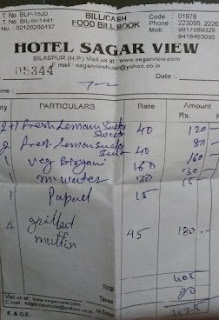 T. No BLP-1520
BIL-III-1441
No. 02120200437
BILL/CASH
FOOD BILL BOOK
Code : 01978
Phone : 223095, 22
Mob : 9817089329
9418493090
HOTEL SAGAR VIEW
BILASPUR (H.P.) Visit us at : www.sagarview.com
mail : sagarviewhotel@yahoo.co.in
05344
Date :
PARTICULARS Rate Amount
Rs.
2+1 Fresh Lemon Soda
Sweet 40 120
2 Fresh Lemon Soda
Salt 40 80
1 Veg Biryani 160 160
1 m water 30 30
1 Papad 15 15
4 grilled
muffin 45 180
Total
Visit us at : www.
E-mail : sagarview
Taxes
E. & O.E.